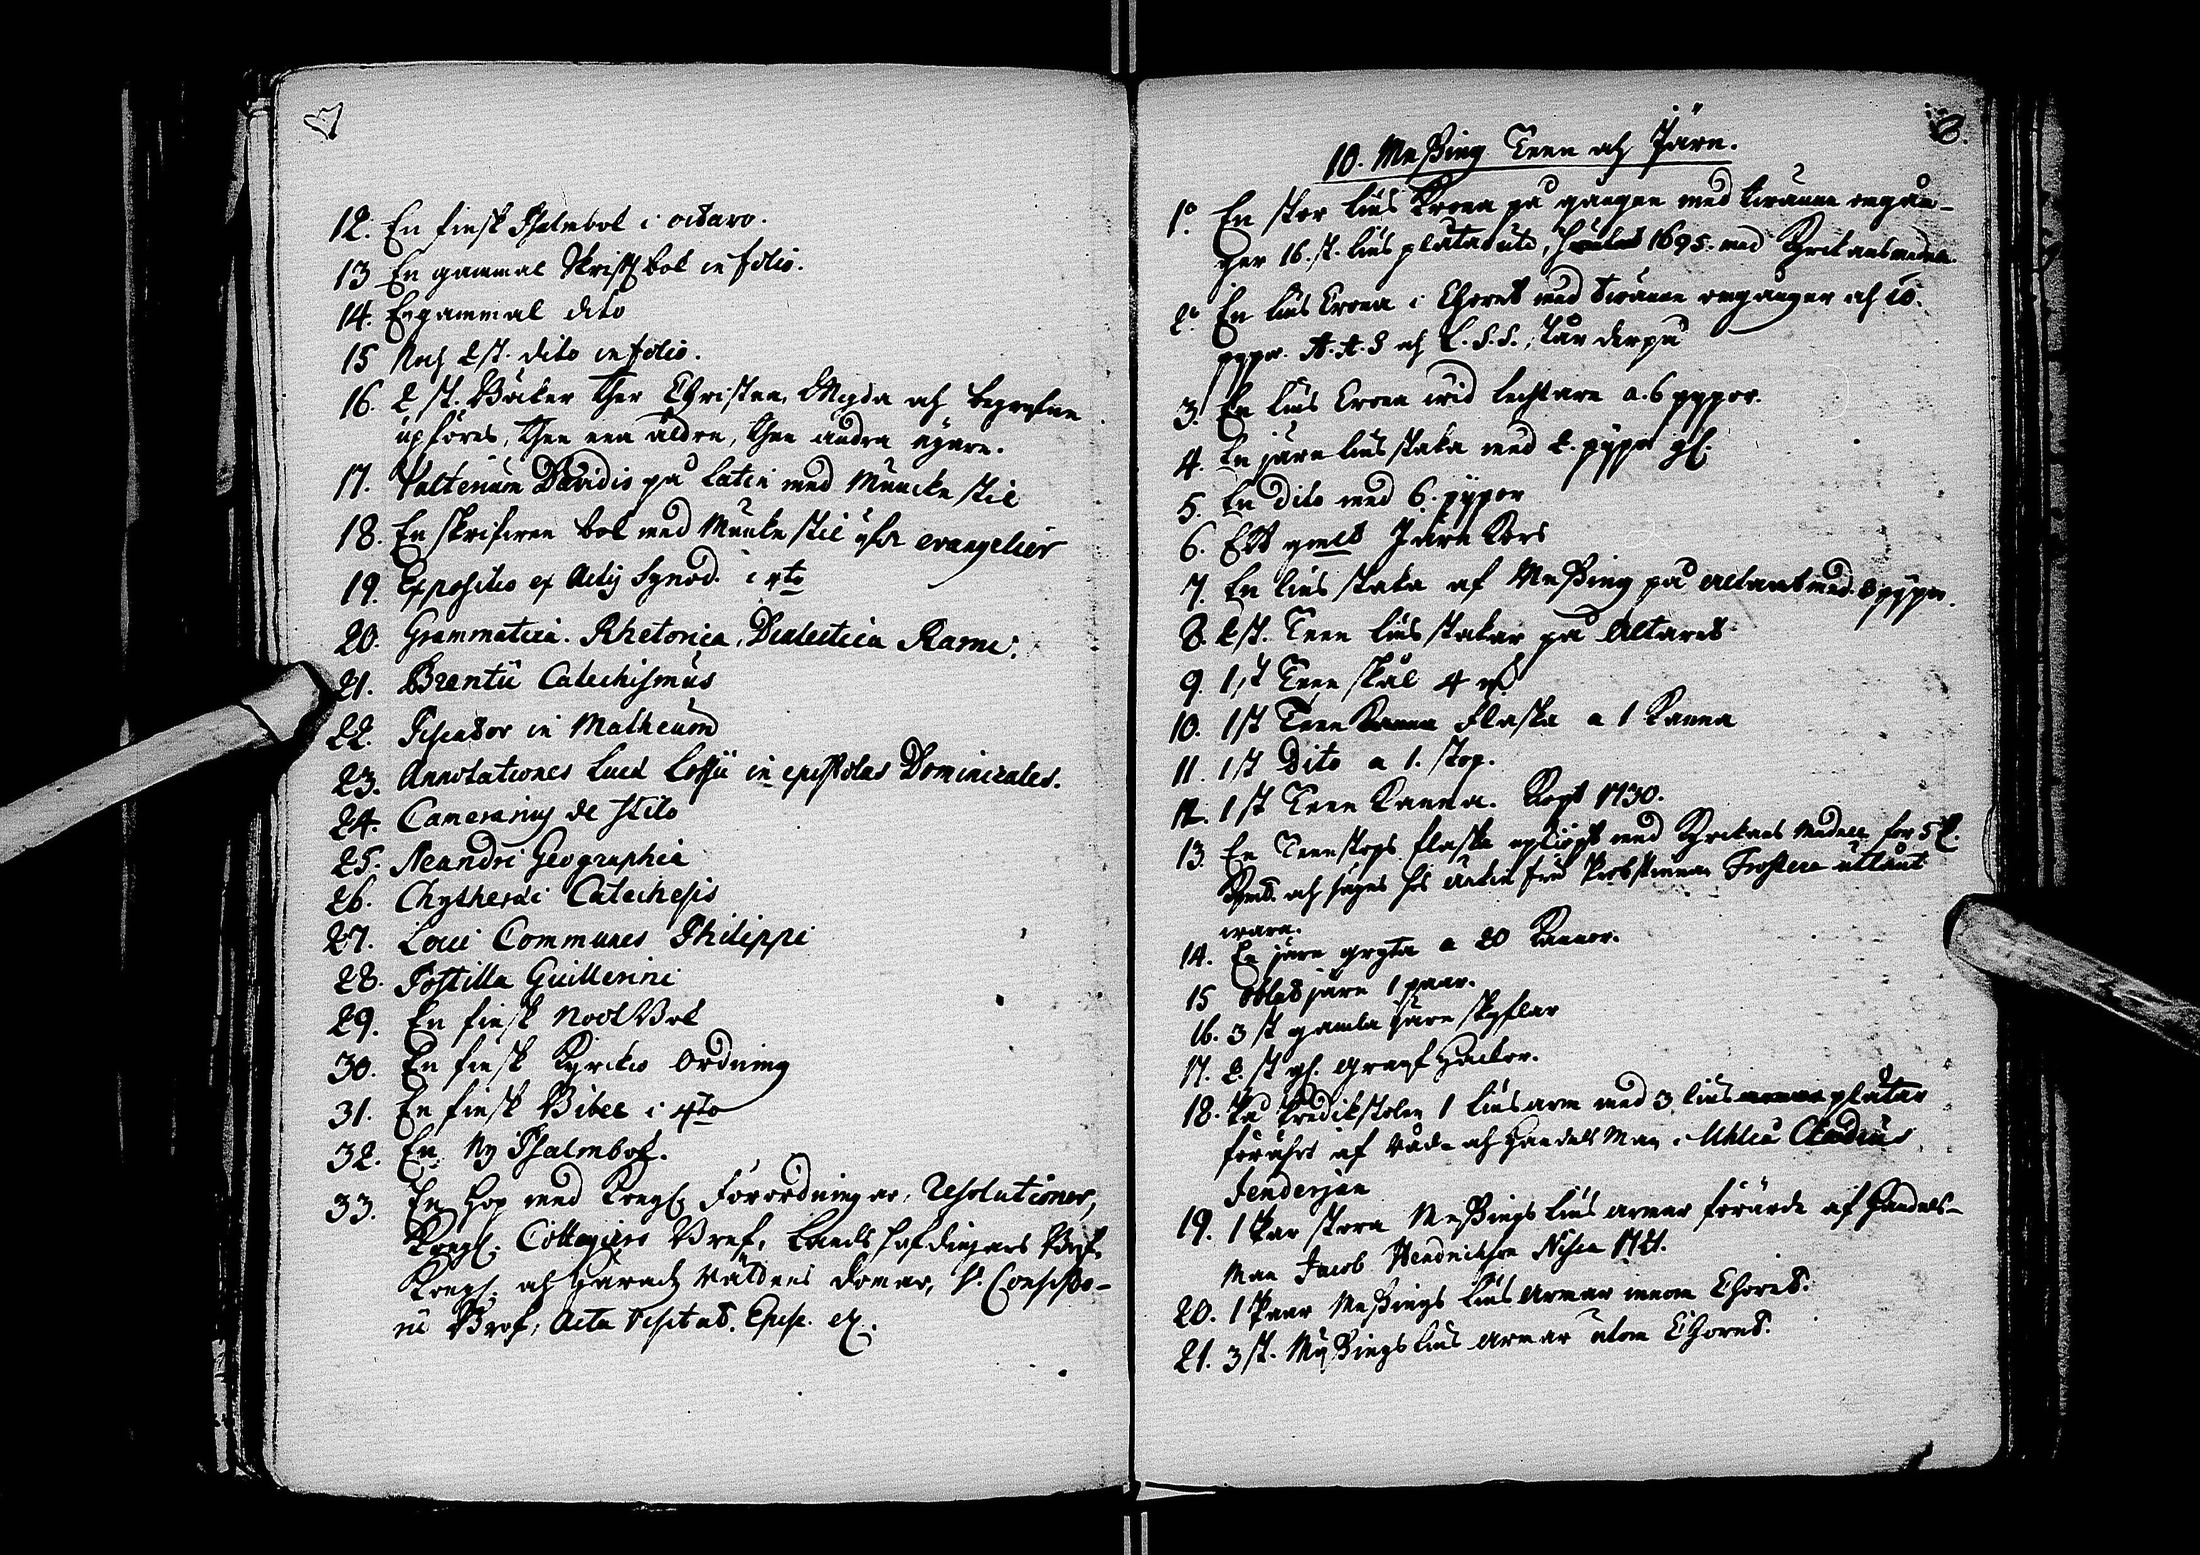 7
12. En finsk Psalmbok i octavo.
13 En gammal Skrifft bok in folio.
14. En gammal dito
15 Noch 2 st. dito in folio.
16. 2 st. Böcker ther Christna, Wigda och begrafne
upföres, then ena äldre, then andra nyare.
17. Psalterium Davidis på Latin med Muncke stil
18. En skrifwen bok med Munke stil öfver evangelier
19. Expositio ex Actis Synod. i 4to
20. Grammatica. Rhetorica, Dialectica Rami.
21. Brentii Catechismus
22. Piscator in Matheum
23. Annotationes Luca Lossii in epistolas Dominicales.
24. Camerarius de stilo
25. Neandri Geographia
26. Chytheræi Catechesis
27. Loci Communes Philippi
28. Postilla Guillerini
29. En finsk Nootbok
30. En finsk Kyrckio Ordning
31. En finsk Bibel i 4to
32. En Ny Psalmbok.
33. En hop med Kongl. Förordningar, Resolutioner,
Kongl. Collegiers Bref, Landshöfdingars Bref
Kongl. och Härads Rättens domar, V. Consisto-
rii Bref, Acta Visitat. Episc. etc.
8.
10. Messing Teen och Järn.
1o En stor lius Krona på gången med twänne omgån-
gar 16. st. lius plåtar 1695. med Kyrkans medel.
2o En lius Crona i Choret med twänne omgångar och 10.
pypor. A. A. S och C. S. S. står derpå
3. En lius Crona wid lecktare a. 6 pypor.
4. En järn liusstaka med 2. pypor gl.
5. En dito med 6. pypor
6. Ett gmelt Järn Kors
7. En lius staka af Messing på altaret med 3 pypor.
8. 2 st. Teen liusstakar på Altaret
9. 1 st Teen skål
10. 1 st Teen Flaska a 1 Kanna
11. 1 st Dito a 1. stop.
12. 1 st Teen Kanna. Köpt 1730.
13 En Teenstops flaska upköpt med Kyrkans Medell for 5
och säges hos Enkie fru Probstinnan utlånt
wara.
14. En järn gryta a 20 Kannor.
15 Oblat järn 1 paar.
16. 3 st gamla järn skyflar
17. 2. st gl. Graf hackor.
18. På Predikstolen 1 lius arm med 3 lius plåtar
förährt af Råd- och Handels Man i Uhleå
19. 1 Par stora Messings lius armar förärde af Handels-
Man Jacob Hendrichson 1721.
20. 1 Paar Messings lius Armar innom Choret.
21. 3 st. Messings lius armar utom Choret.